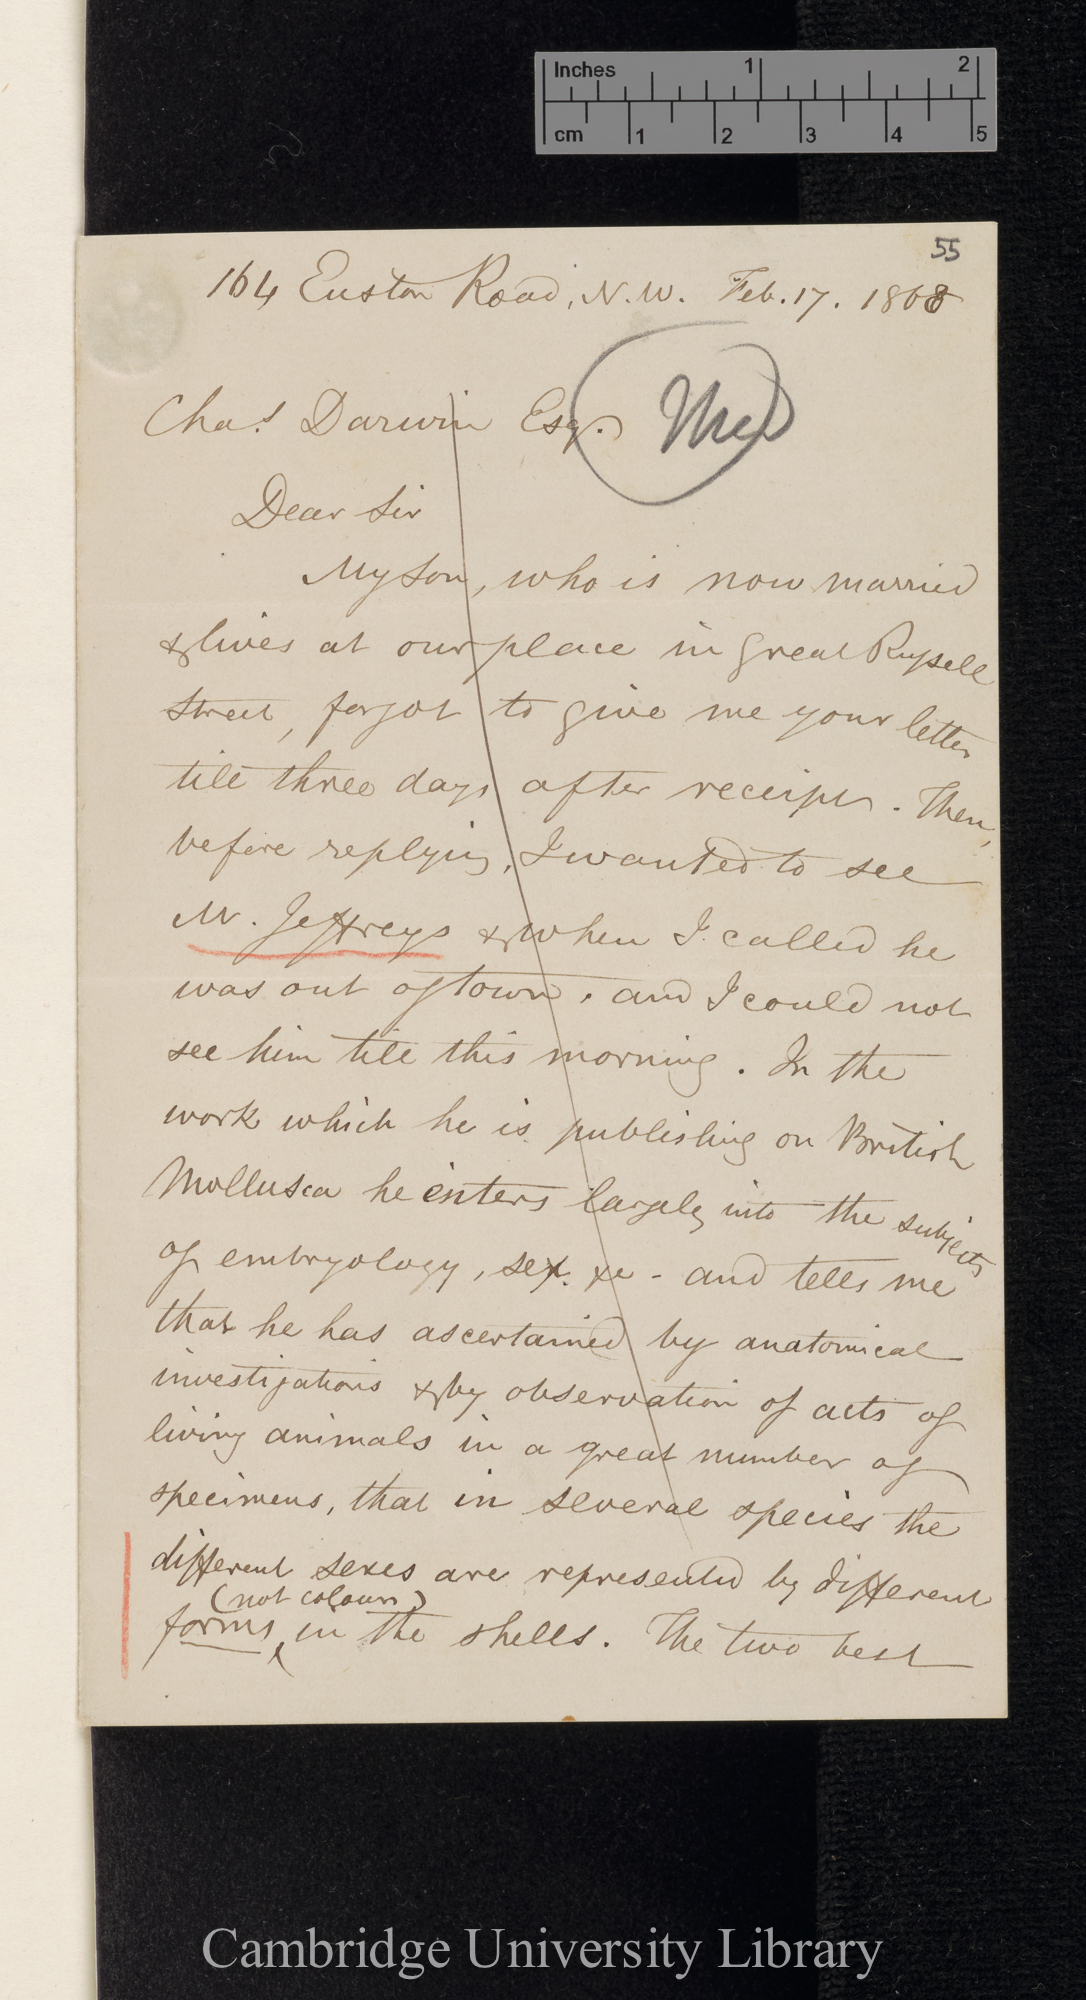 Inches 1 2
cm 1 2 3 4 5
55
164 Euston Road, N.W. Feb. 17. 1868
Chas. Darwin Esq.
Dear Sir
My Son, who is now married
& lives at our place in Great Russell
Street, forgot to give me your letter
till three days after receipt. Then,
before replying, I wanted to see
Mr. Jeffreys & when I called he
was out of town, and I could not
see him till this morning. In the
work which he is publishing on British
Mollusca he enters largely into the subjects
of embryology, sex. &c - and tells me
that he has ascertained by anatomical
investigations & by observation of acts of
living animals in a great number of
specimens, that in several species the
different sexes are represented by different
(not colours)
forms in the shells. The two best
Cambridge University Library